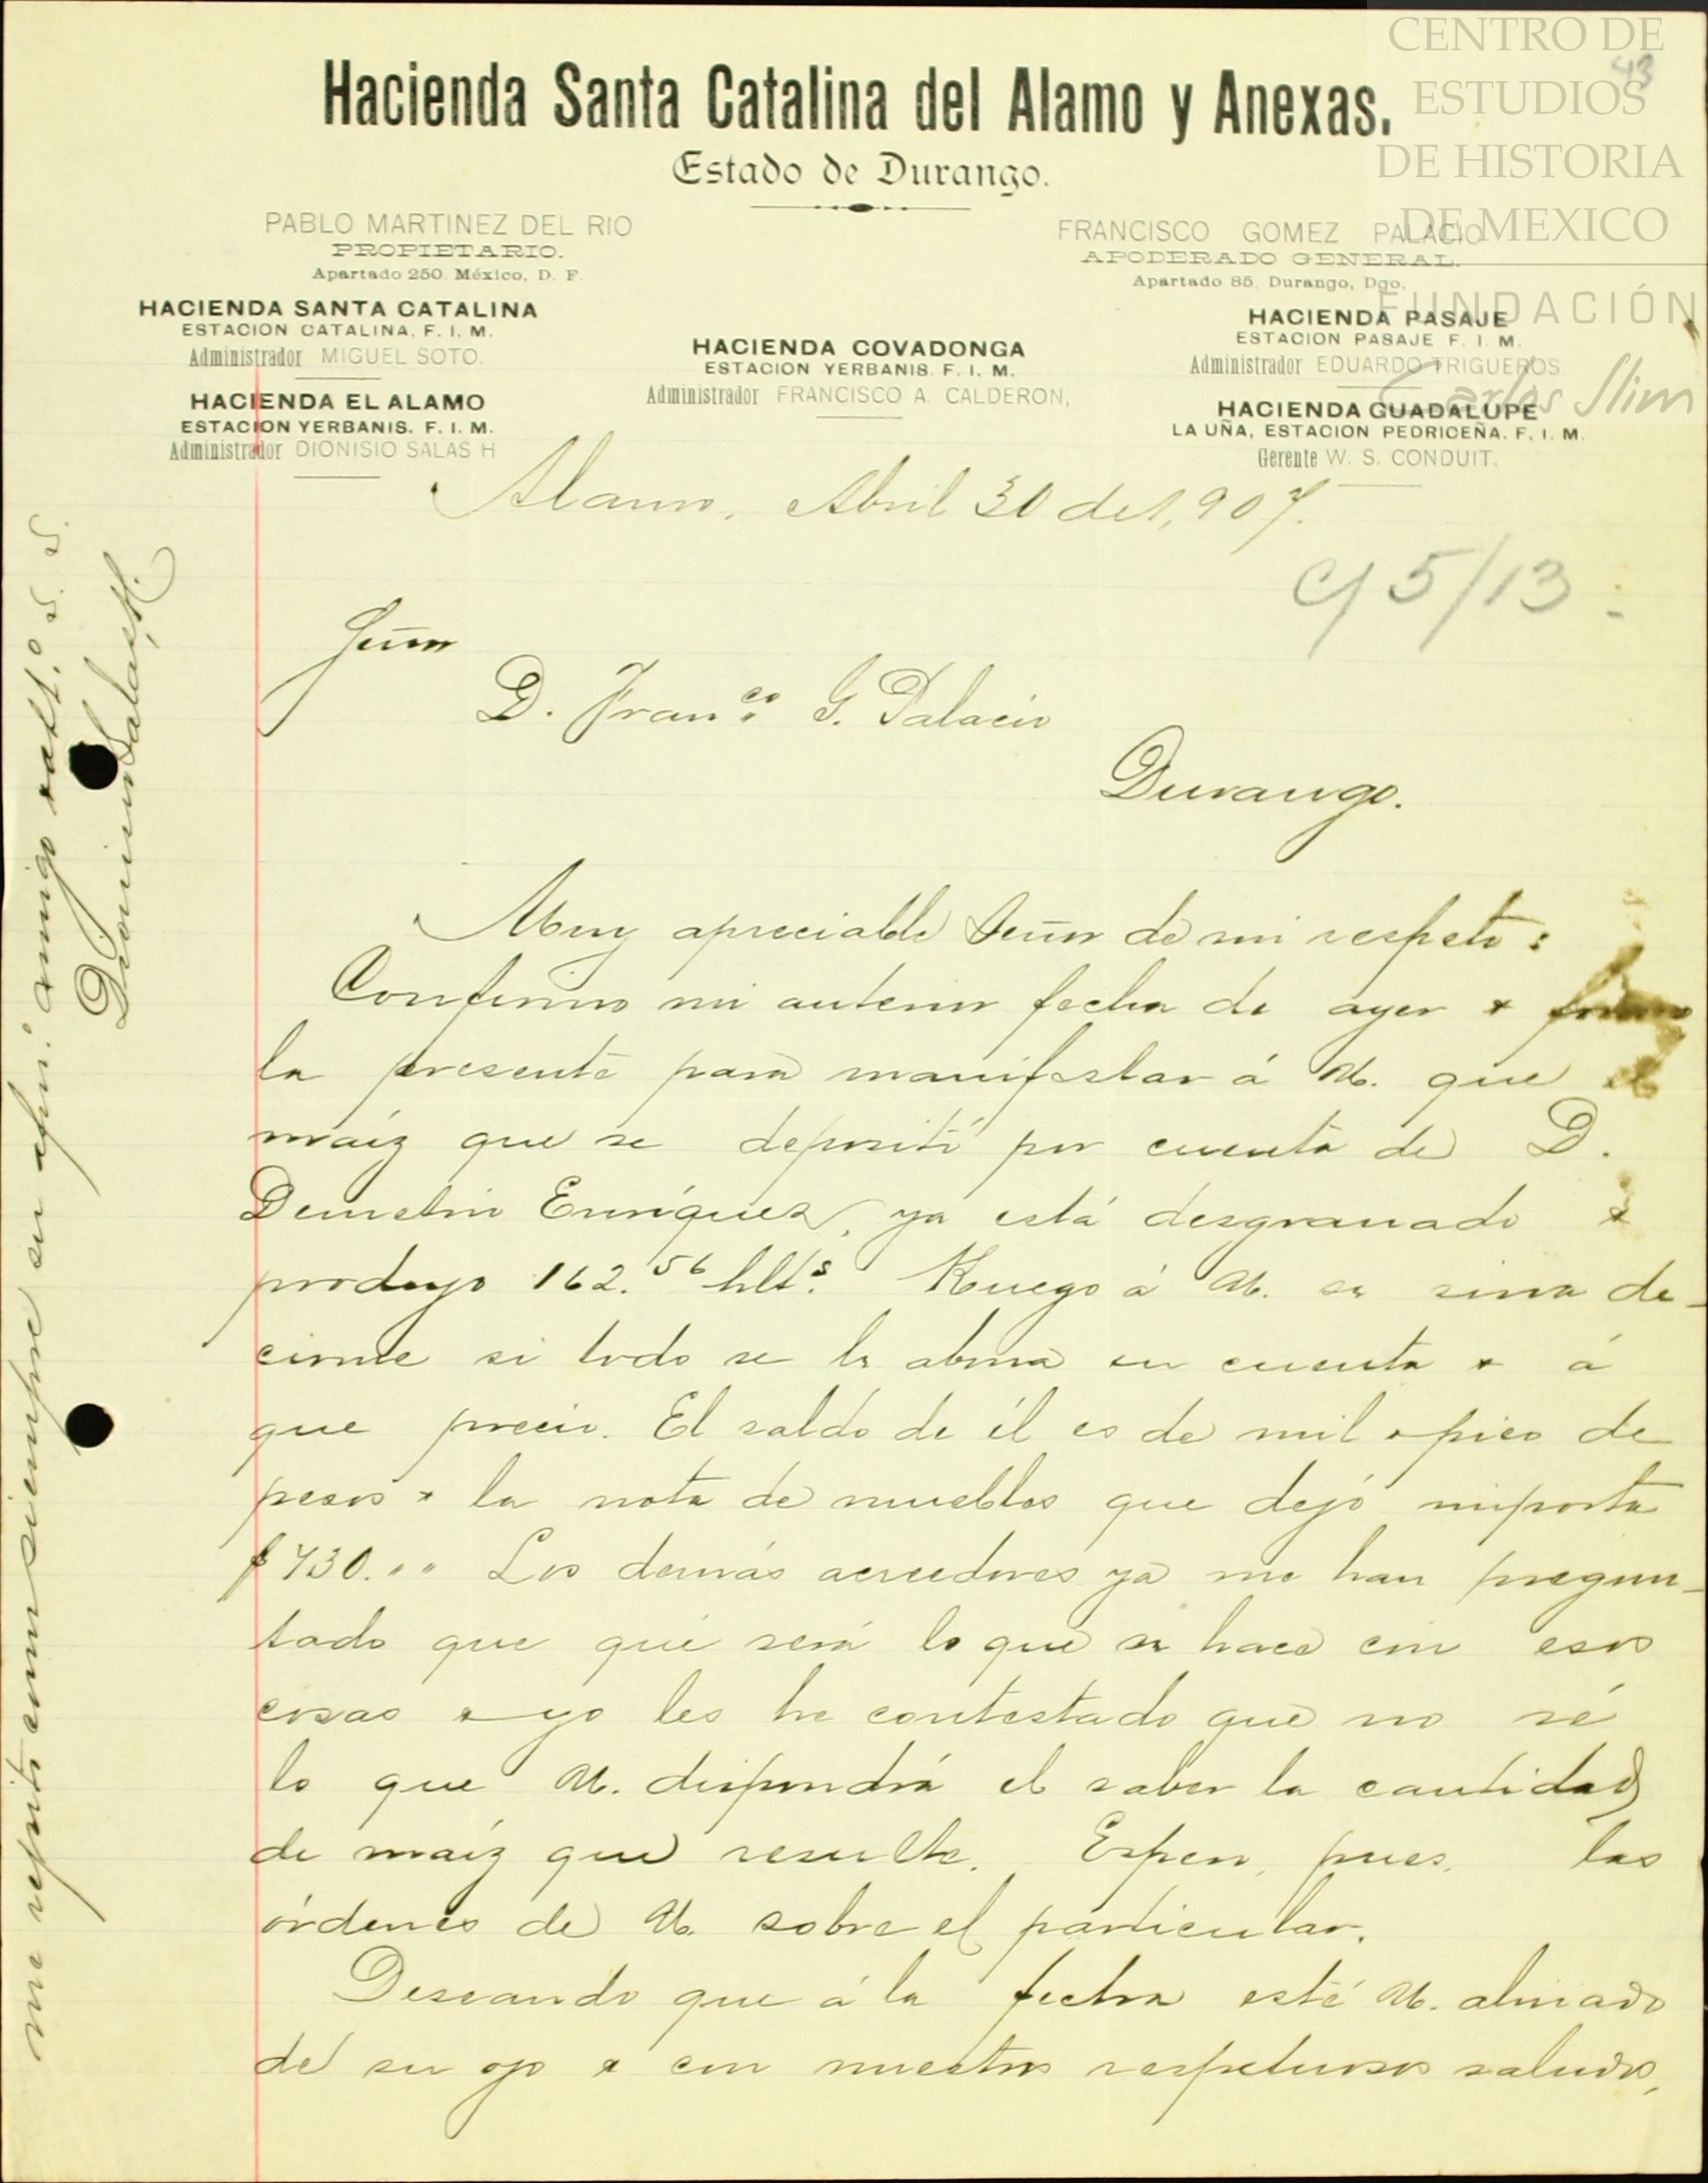 CENTRO DE
ESTUDIOS
DE HISTORIA
DE MEXICO
FUNDACIÓN
Carlos Slim
43
Hacienda Santa Catalina del Alamo y Anexas.
Estado de Durango.
PABLO MARTINEZ DEL RIO
PROPIETARIO.
Apartado 250. México, D. F.
FRANCISCO GOMEZ PALACIO
APODERADO GENERAL.
Apartado 85, Durango, Dgo.
HACIENDA SANTA CATALINA
ESTACION CATALINA. F. I. M.
Administrador MIGUEL SOTO.
HACIENDA EL ALAMO
ESTACION YERBANIS. F. I. M.
Administrador DIONISIO SALAS H
HACIENDA COVADONGA
ESTACION YERBANIS. F. I. M.
Administrador FRANCISCO A. CALDERON,
HACIENDA PASAJE
ESTACION PASAJE F. I. M.
Administrador EDUARDO TRIGUEROS
HACIENDA GUADALUPE
LA UÑA, ESTACION PEDRICEÑA. F. I. M.
Gerente W. S. CONDUIT.
Alamo, Abril 30 de 1,907.
C/ 5/13
Señor
D. Franco. G. Palacio
Durango.
Muy apreciable Señor de mi respeto:
Confirmo mi anterior fecha de ayer y
la presente para manifestar á U. que el
maíz que se depositó por cuenta de D.
Demetrio Enríquez, ya está desgranado y
produjo 162.56 hlts. Ruego á U. se sirva de-
cirme si todo se le abona en cuenta y á
que precio. El saldo de él es de mil y pico de
pesos y la nota de muebles que dejó importa
$730." " Los demás acreedores ya me han pregun-
tado que qué será lo que se hace con esas
cosas y yo les he contestado que no sé
lo que U. dispondrá el saber la cantidad
de maíz que resulte. Espero, pues, las
órdenes de U. sobre el particular.
Deseando que á la fecha esté U. aliviado
de su ojo y con nuestros respetuosos saludos,
me repito como siempre su afmo. amigo atto. S. S.
Dionisio Salas H.